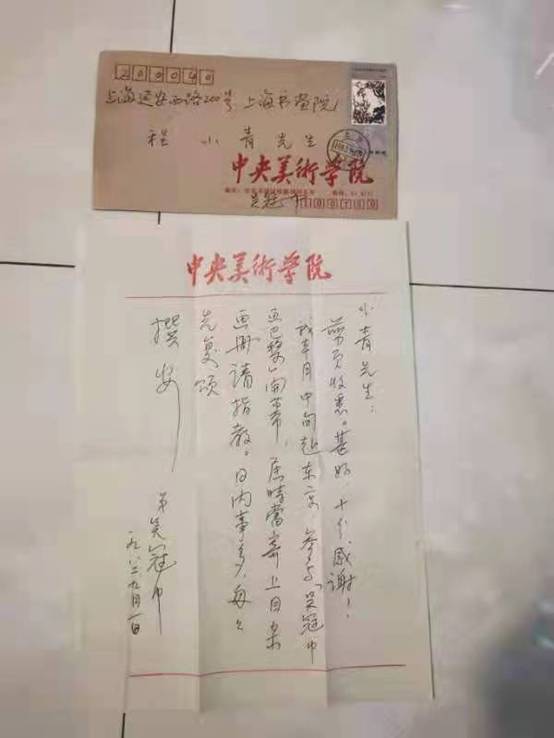 200040
上海延安西路200号 上海书画院
程小青先生
中央美術学院
吴冠中
中央美術学院
小青先生:
剪页收悉。甚好,十分感谢!
我本月中旬赴东京 参与「吴冠中
画巴黎」开幕,届时当寄上日本
画册请指教。日内事多,匆匆
先复颂
撰安
弟吴冠中
一九八九九月一日